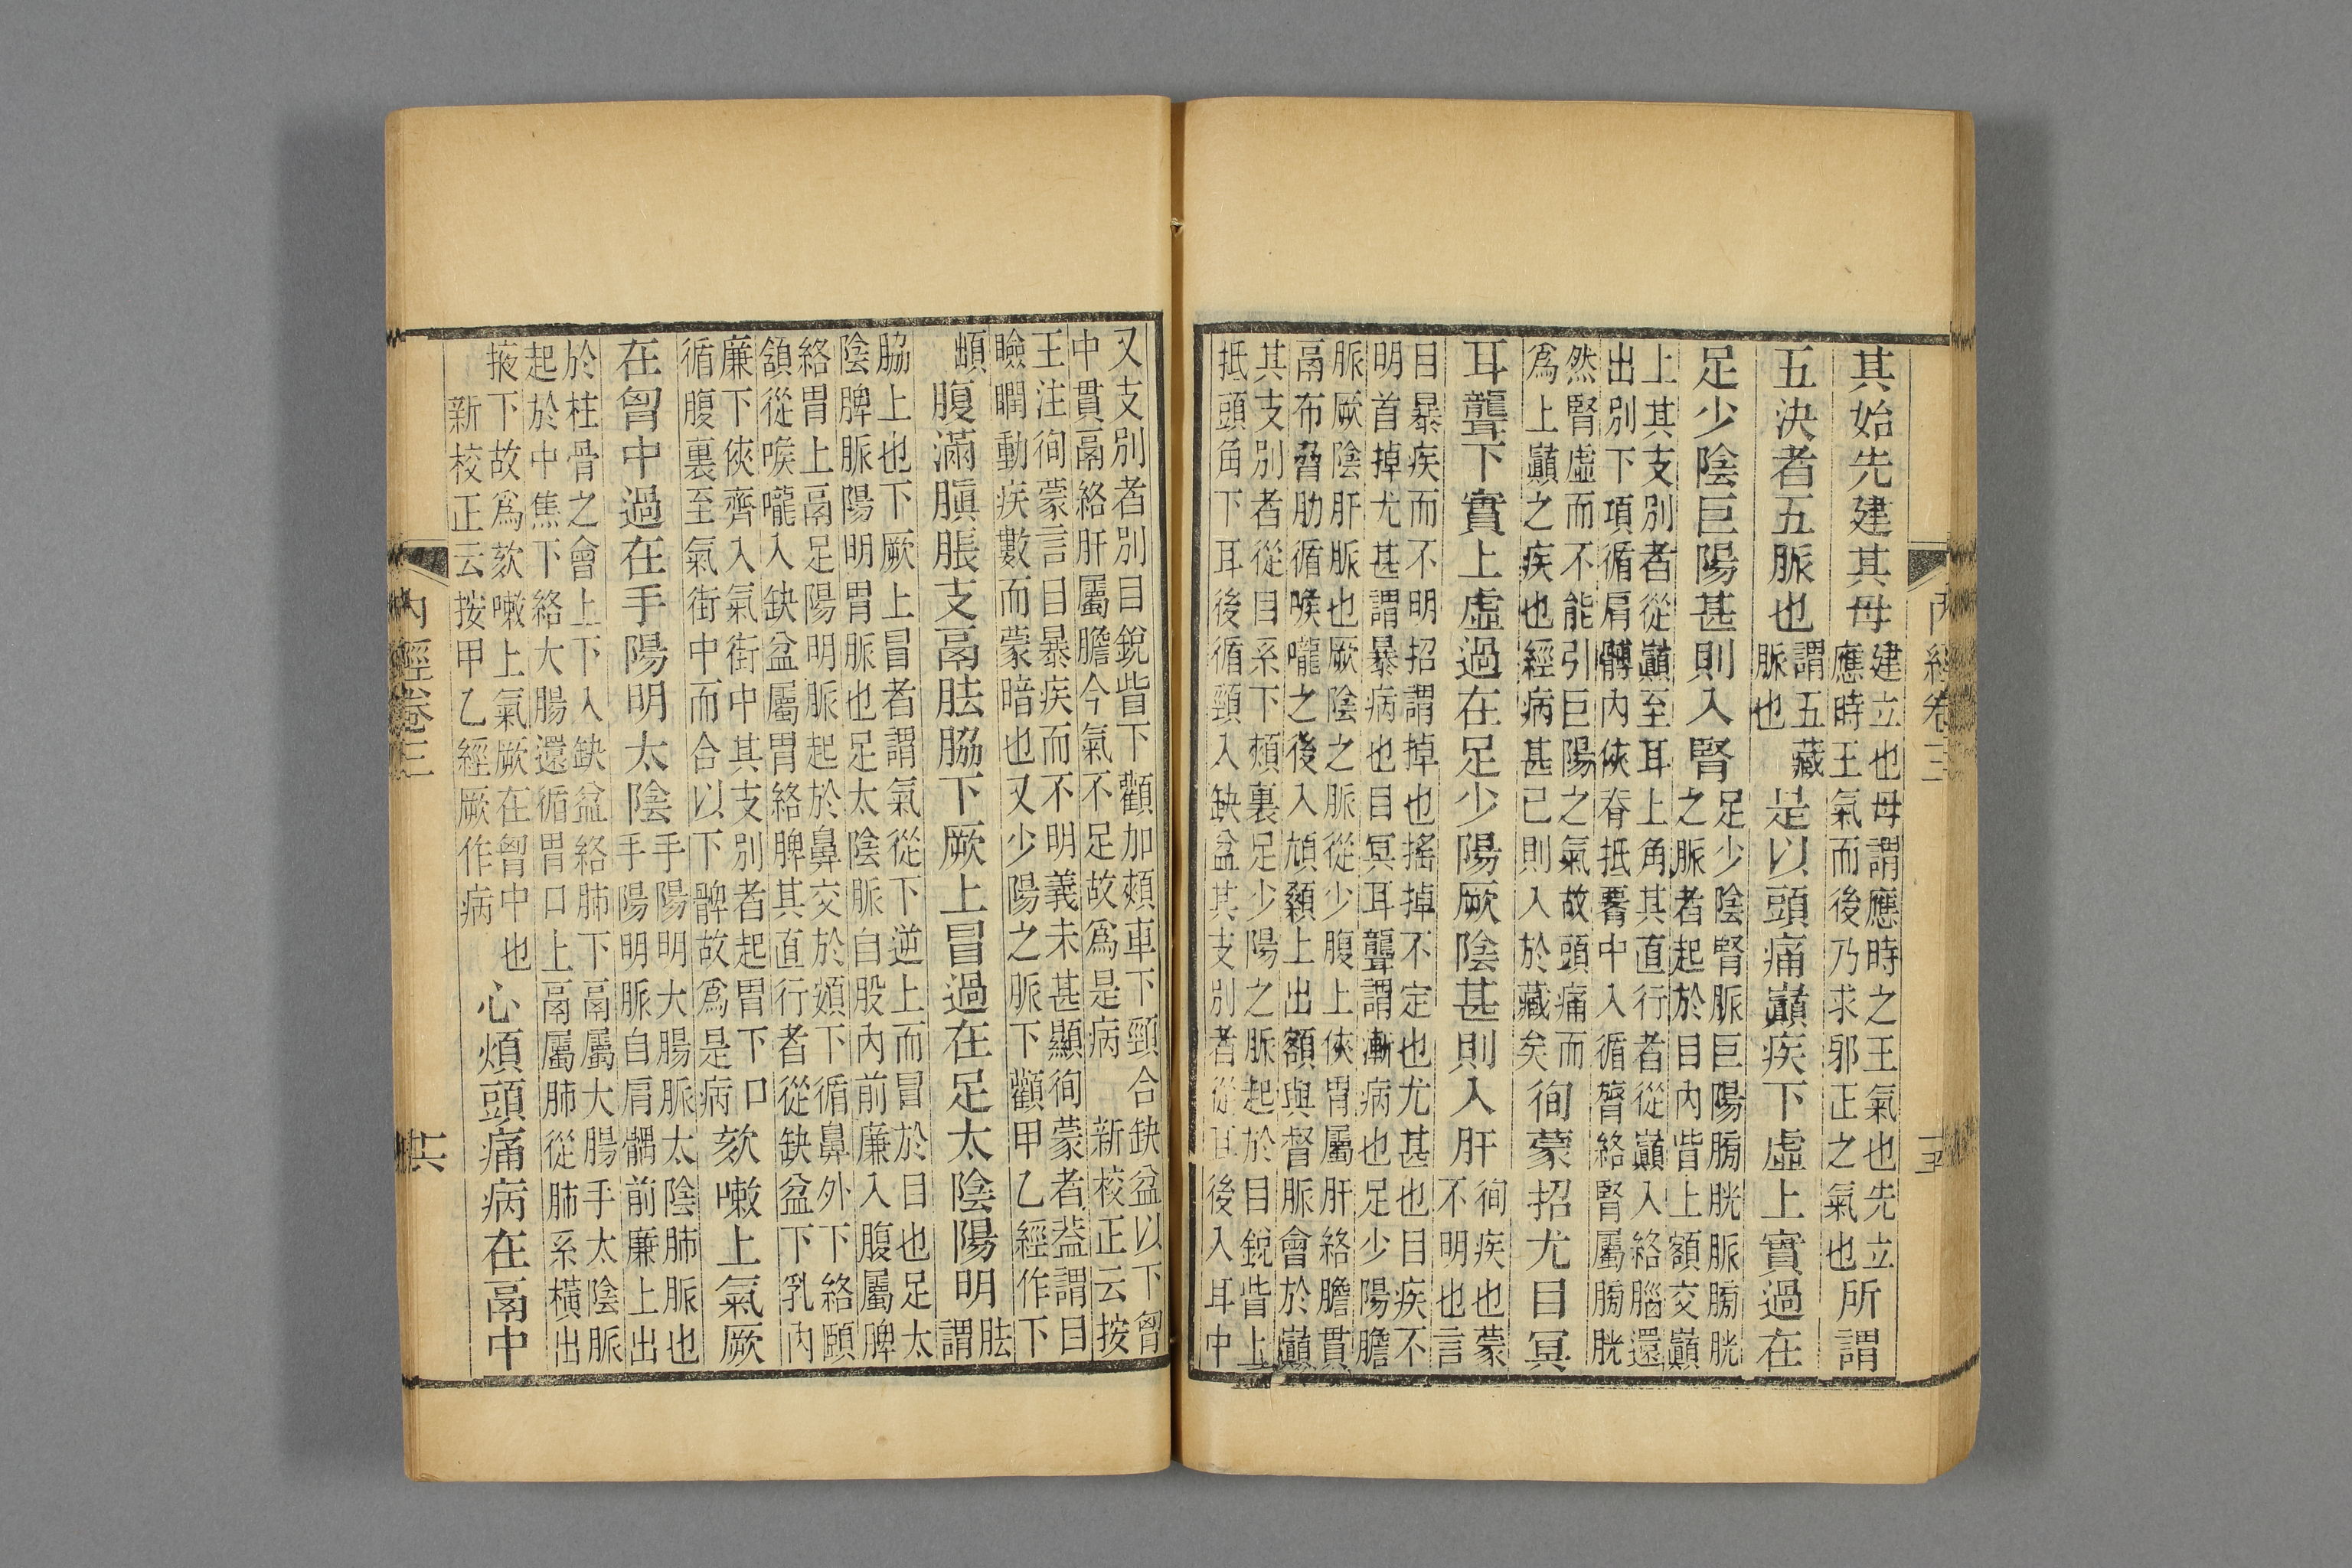 內經卷三
其始先建其母
建立也母謂應時之王氣也先立
應時王氣而後乃求邪正之氣也
所謂
五決者五脈也
謂五藏
脈也
是以頭痛巔疾下虛上實過在
足少陰巨陽甚則入腎
足少陰腎脈巨陽膀胱脈膀胱
之脈者起於目內眥上額交巔
上其支別者從巔至耳上角其直行者從巔入絡腦還
出別下項循肩髆內俠脊抵中入循膂絡腎屬膀胱
然腎虛而不能引巨陽之氣故頭痛而
爲上巔之疾也經病甚已則入於藏矣
徇蒙招尤目冥
耳聾下實上虛過在足少陽厥陰甚則入肝
徇疾也蒙
不明也言
目暴疾而不明招謂掉也搖掉不定也尤甚也目疾不
明首掉尤甚謂暴病也目冥耳聾謂漸病也足少陽膽
脈厥陰肝脈也厥陰之脈從少腹上俠胃屬肝絡膽貫
鬲布脅肋循喉嚨之後入頏顙上出額與督脈會於巔
其支別者從目系下頰裏足少陽之脈起於目銳眥上
抵頭角下耳後循頸入缺盆其支別者從耳後入耳中
又支別者別目銳眥下顴加頰車下頸合缺盆以下胷
中貫鬲絡肝屬膽今氣不足故爲是病 新校正云按
王注徇蒙言目暴疾而不明義未甚顯徇蒙者蓋謂目
瞼瞤動疾數而蒙暗也又少陽之脈下顴甲乙經作下
䪼
腹滿䐜脹支鬲胠脇下厥上冒過在足太陰陽明
胠
謂
脇上也下厥上冒者謂氣從下逆上而冒於目也足太
陰脾脈陽明胃脈也足太陰脈自股內前廉入腹屬脾
絡胃上鬲足陽明脈起於鼻交於頞下循鼻外下絡頤
頷從喉嚨入缺盆屬胃絡脾其直行者從缺盆下乳內
廉下俠齊入氣街中其支別者起胃下口
循腹裏至氣街中而合以下髀故爲是病
欬嗽上氣厥
在胷中過在手陽明太陰
手陽明大腸脈太陰肺脈也
手陽明脈自肩髃前廉上出
於柱骨之會上下入缺盆絡肺下鬲屬大腸手太陰脈
起於中焦下絡大腸還循胃口上鬲屬肺從肺系橫出
掖下故爲欬嗽上氣厥在胷中也
新校正云按甲乙經厥作病
心煩頭痛病在鬲中
內經卷三